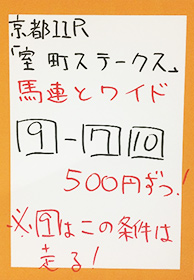 京都11R
「室町ステークス」
馬連とワイド
9-7 10
500円ずつ!
※9はこの条件は
走る!